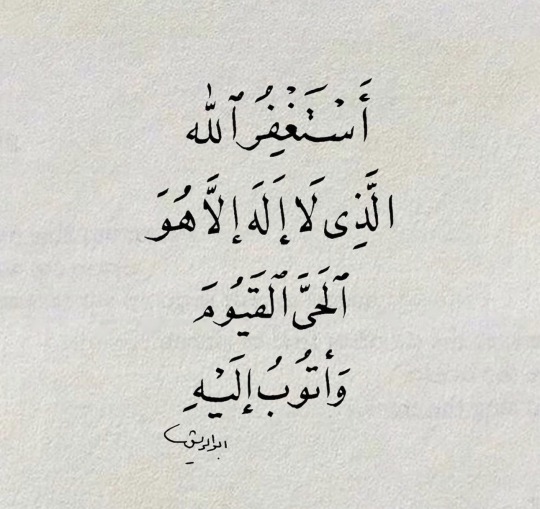 أَسْتَغْفِرُ ٱللّٰه
الَّذِى لَا إِلَهَ إِلَّا هُوَ
ٱلحَىَّ ٱلقَيُّومَ
وَأَتُوبُ إِلَيْهِ